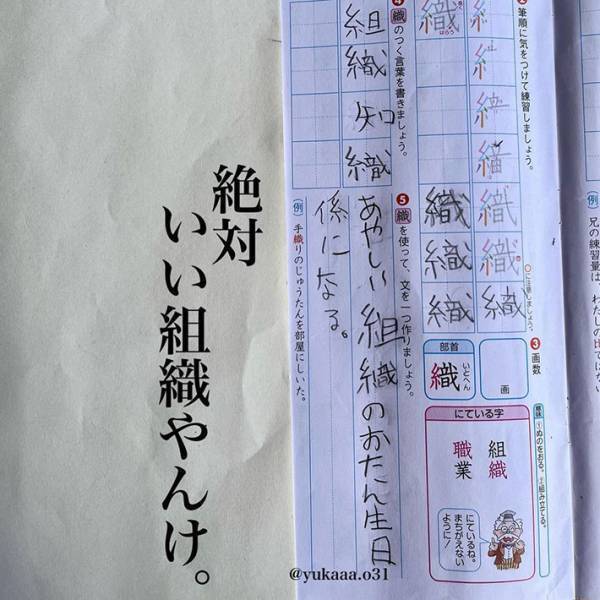 ②筆順に気をつけて練習しましょう。
織
はらう
○に注意しましょう。
織
織
織
織
織
織
③画数
画
部首
織
いとへん
意味
①ぬのをおる。②組み立てる。
にている字
組織
職業
にているね。
まちがえない
ように！
④織のつく言葉を書きましょう。
組織
知織
⑤織を使って、文を一つ作りましょう。
あやしい組織のおたん生日
係になる。
(例)手織りのじゅうたんを部屋にしいた。
(例)兄の練習量は、わたしの比ではない
絶対
いい組織やんけ。
@yukaaa.o31